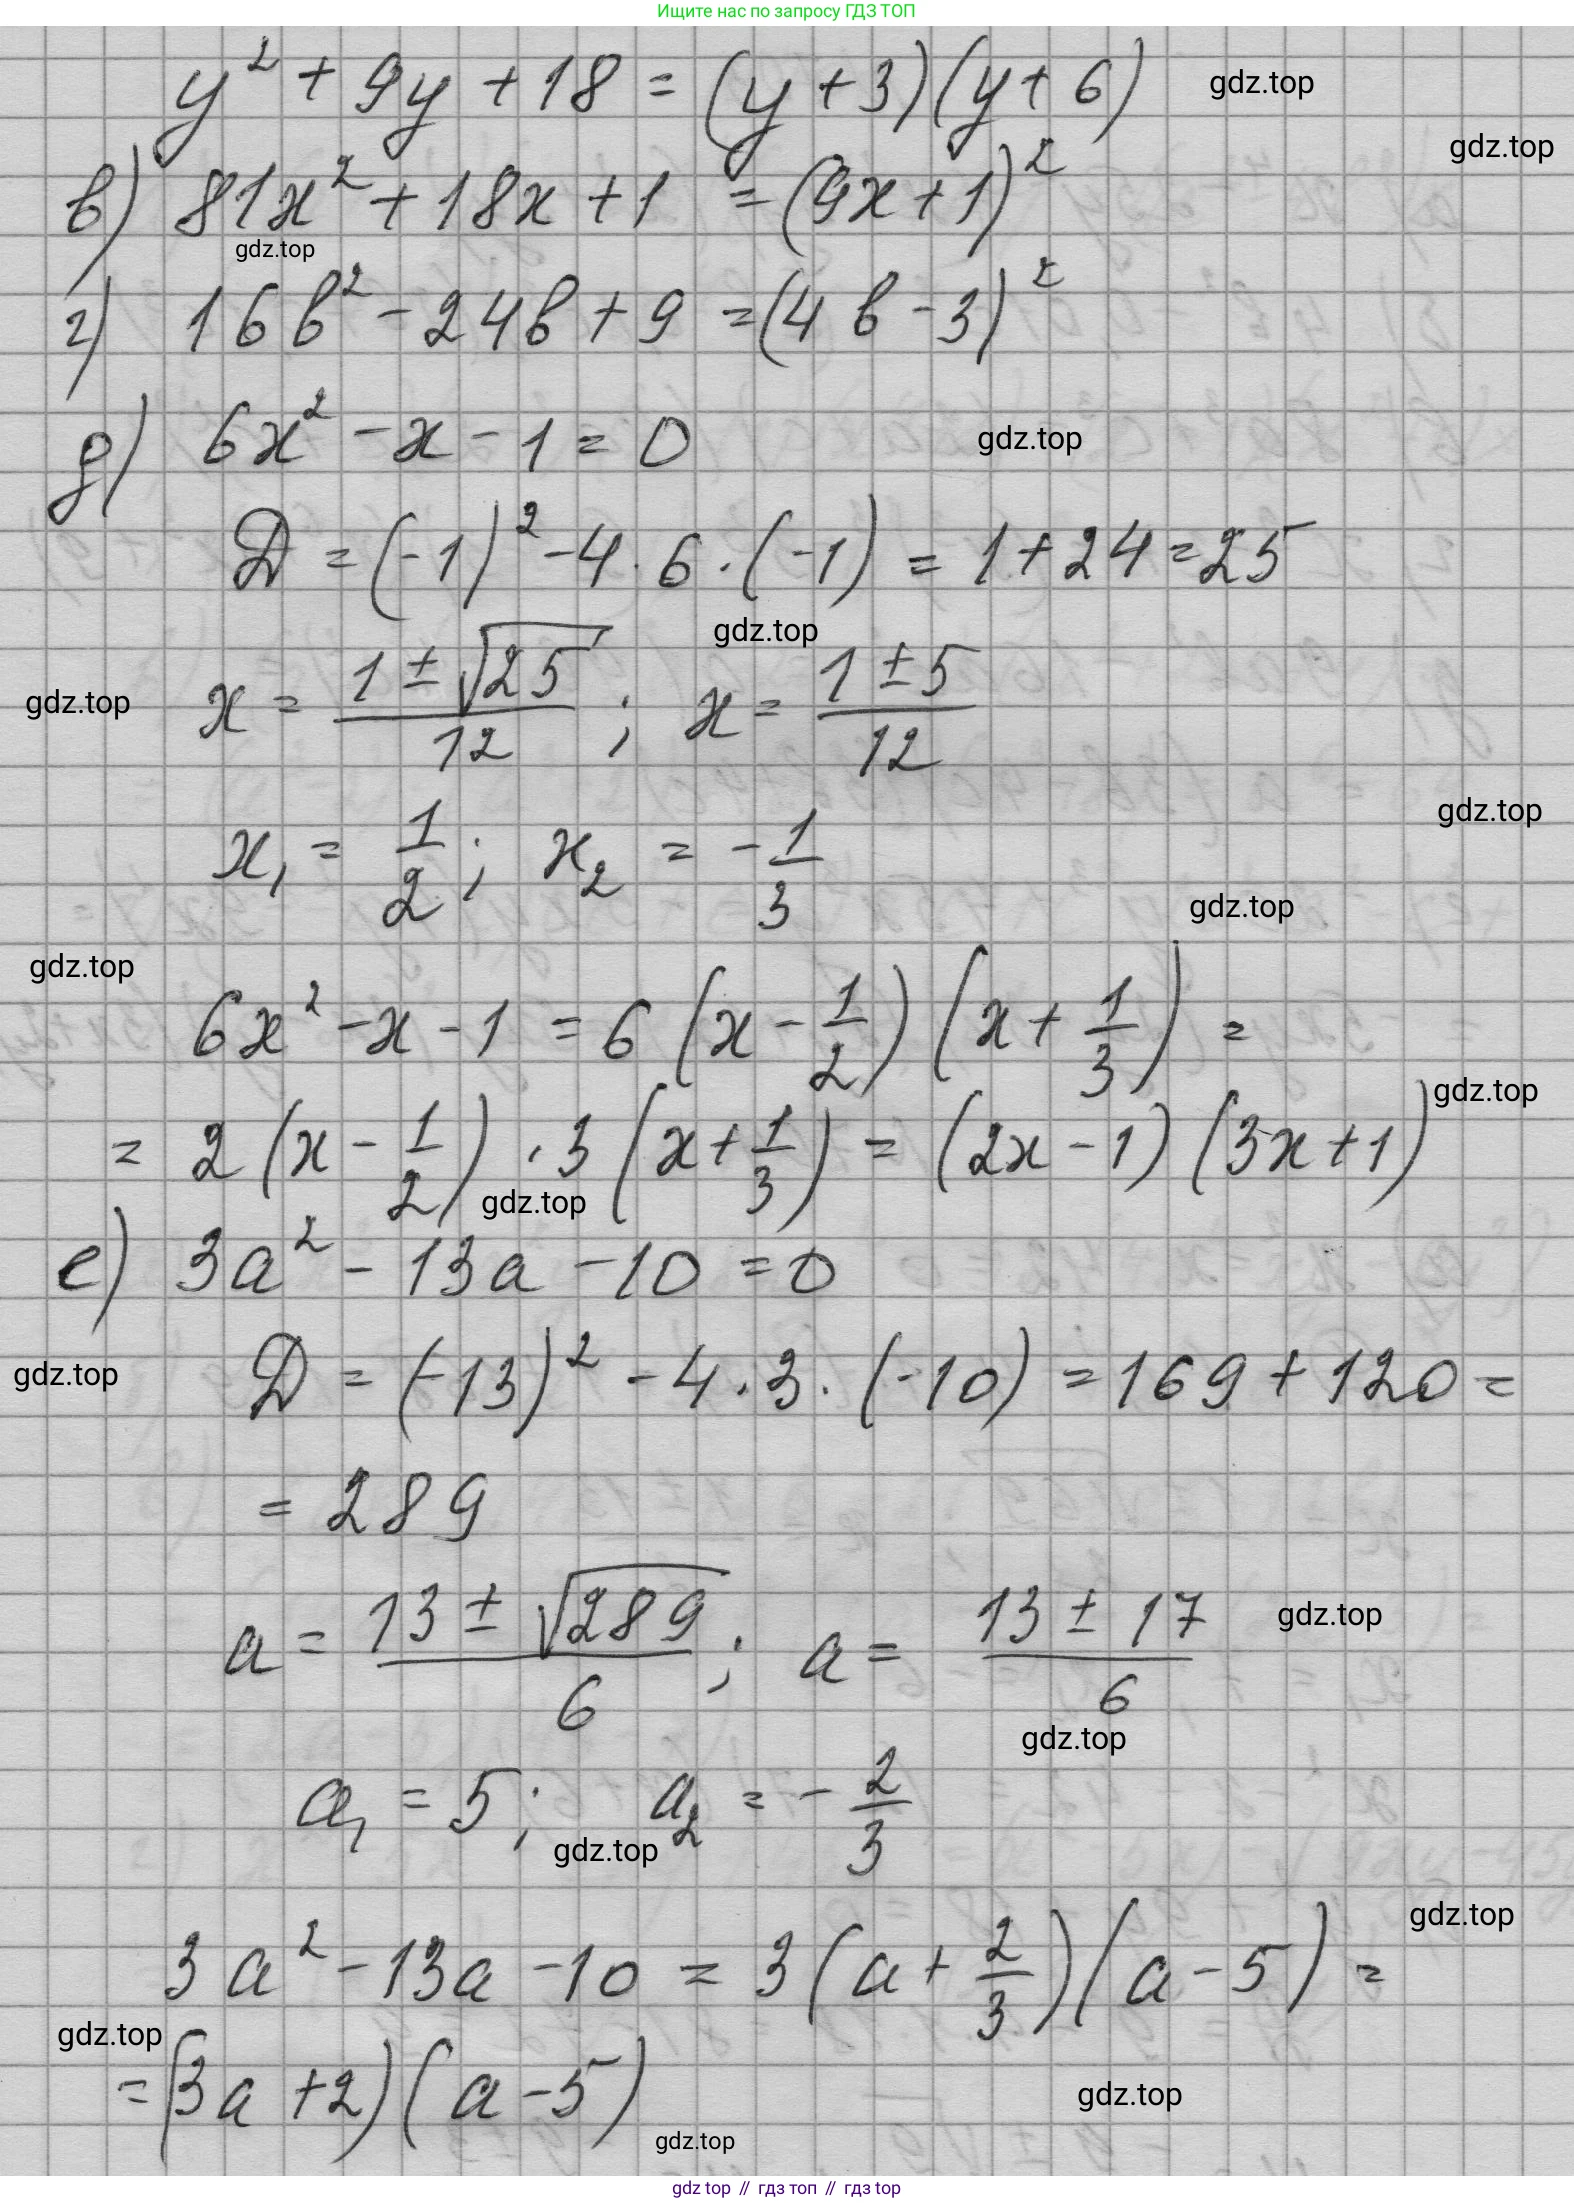 Ищите нас по запросу ГДЗ ТОП
y² + 9y + 18 = (y + 3)(y + 6)
gdz.top
gdz.top
в) 81x² + 18x + 1 = (9x + 1)²
gdz.top
г) 16b² - 24b + 9 = (4b - 3)²
д) 6x² - x - 1 = 0
gdz.top
D = (-1)² - 4 · 6 · (-1) = 1 + 24 = 25
gdz.top
gdz.top
x = (1 ± √25)/12 ; x = (1 ± 5)/12
gdz.top
x₁ = 1/2 ; x₂ = - 1/3
gdz.top
gdz.top
6x² - x - 1 = 6 (x - 1/2) (x + 1/3) =
gdz.top
= 2 (x - 1/2) · 3 (x + 1/3) = (2x - 1) (3x + 1)
gdz.top
е) 3a² - 13a - 10 = 0
gdz.top
D = (-13)² - 4 · 3 · (-10) = 169 + 120 =
= 289
a = (13 ± √289)/6 ; a = (13 ± 17)/6
gdz.top
gdz.top
a₁ = 5 ; a₂ = - 2/3
gdz.top
gdz.top
3a² - 13a - 10 = 3 (a + 2/3) (a - 5) =
gdz.top
= (3a + 2) (a - 5)
gdz.top
gdz.top
gdz top // гдз топ // гдз top